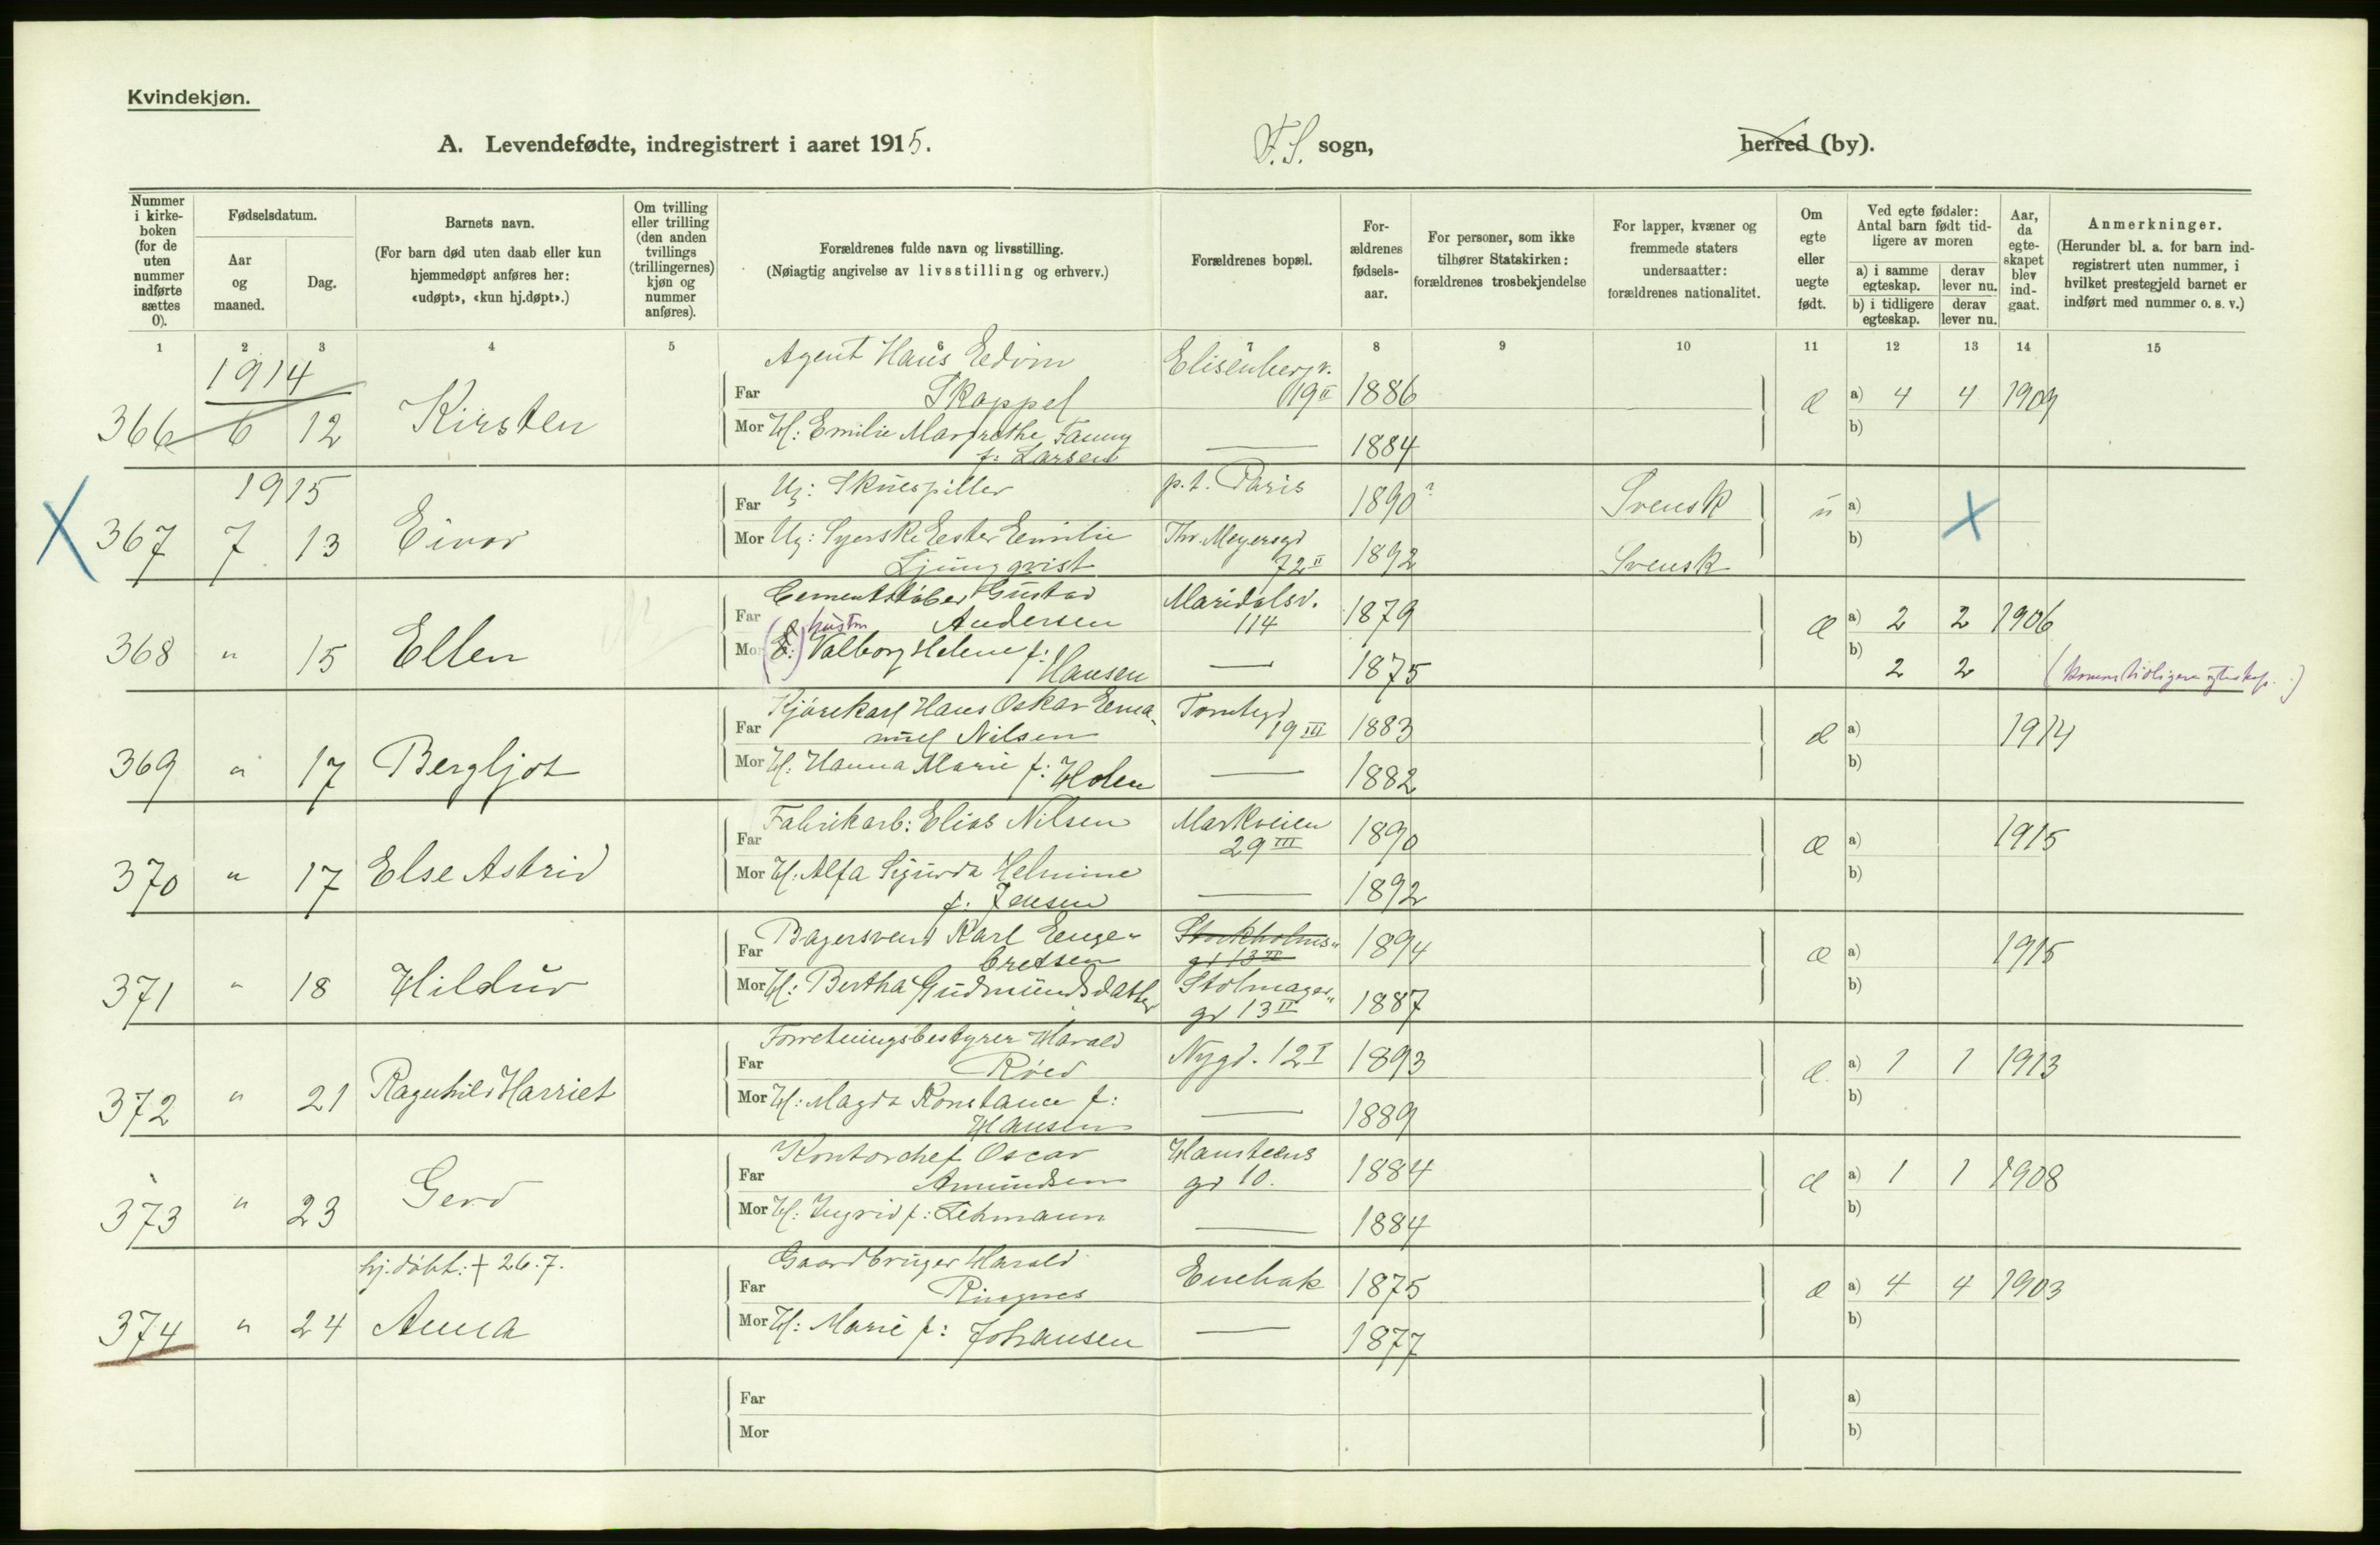 Kvindekjøn.
A. Levendefødte, indregistrert i aaret 1915.
F. S. sogn,
herred (by).
Nummer i kirkeboken (for de uten nummer indførte sættes 0).
Fødselsdatum.
Aar og maaned.
Dag.
Barnets navn.
(For barn død uten daab eller kun hjemmedøpt anføres her: «udøpt», «kun hj.døpt».)
Om tvilling eller trilling (den anden tvillings (trillingernes) kjøn og nummer anføres).
Forældrenes fulde navn og livsstilling.
(Nøiagtig angivelse av livsstilling og erhverv.)
Forældrenes bopæl.
Forældrenes fødselsaar.
For personer, som ikke tilhører Statskirken: forældrenes trosbekjendelse
For lapper, kvæner og fremmede staters undersaatter: forældrenes nationalitet.
Om egte eller uegte født.
Ved egte fødsler: Antal barn født tidligere av moren
a) i samme egteskap.
derav lever nu.
b) i tidligere egteskap.
derav lever nu.
Aar, da egteskapet blev indgaat.
Anmerkninger.
(Herunder bl. a. for barn indregistrert uten nummer, i hvilket prestegjeld barnet er indført med nummer o. s. v.)
1 2 3 4 5 6 7 8 9 10 11 12 13 14 15
1914
Agent Hans Edvin Elisenbergv.
Far Skappel 19 II 1886 æ a) 4 4 1909
366 6 12 Kirsten
Mor H: Emilie Margrethe Fanny b)
f: Larsen — 1884
1915
X Far Ug: Skuespiller p.t. Paris 1890? Svensk u a) X
367 7 13 Eivor
Mor Ug: Syerske Ester Emilie Thv. Meyersgd b)
Ljungqvist 72 II 1892 Svensk
Cementstøber Gustav Maridalsv.
Far Andersen 114 1879 æ a) 2 2 1906
hustru
368 " 15 Ellen
Mor E: Valborg Helene f: b)
Hansen — 1875 2 2
Kjørekarl Hans Oskar Ema-
Far nuel Nilsen 19 III 1883 æ a) 1914
369 " 17 Bergljot
Mor H: Hanna Marie f: Holen — 1882 b)
Fabrikarb: Elias Nilsen Markveien
Far 29 III 1890 æ a) 1915
370 " 17 Else Astrid
Mor H: Alfa Sigurda Helmine b)
f: Jensen — 1892
Bagersvend Karl Enge- Stockholms-
Far bretsen gd 13 II 1894 æ a) 1915
371 " 18 Hildur
Mor H: Bertha Gudmundsdatter Stolmager- b)
gd 13 II 1887
Forretningsbestyrer Harald
Far Röed Nygd. 12 I 1893 æ. a) 1 1 1913
372 " 21 Ragnhild Harriet
Mor H: Magda Konstance f: b)
Hansen — 1889
Kontorchef Oscar Hansteens
Far Amundsen gd 10. 1884 æ a) 1 1 1908
373 " 23 Gerd
Mor H: Ingrid f: Lehmann — 1884 b)
hj.døbt: + 26.7.
Gaardbruger Harald
Far Ringnes Enebak 1875 æ a) 4 4 1903
374 " 24 Anna
Mor H: Marie f: Johansen — 1877 b)
Far a)
Mor b)